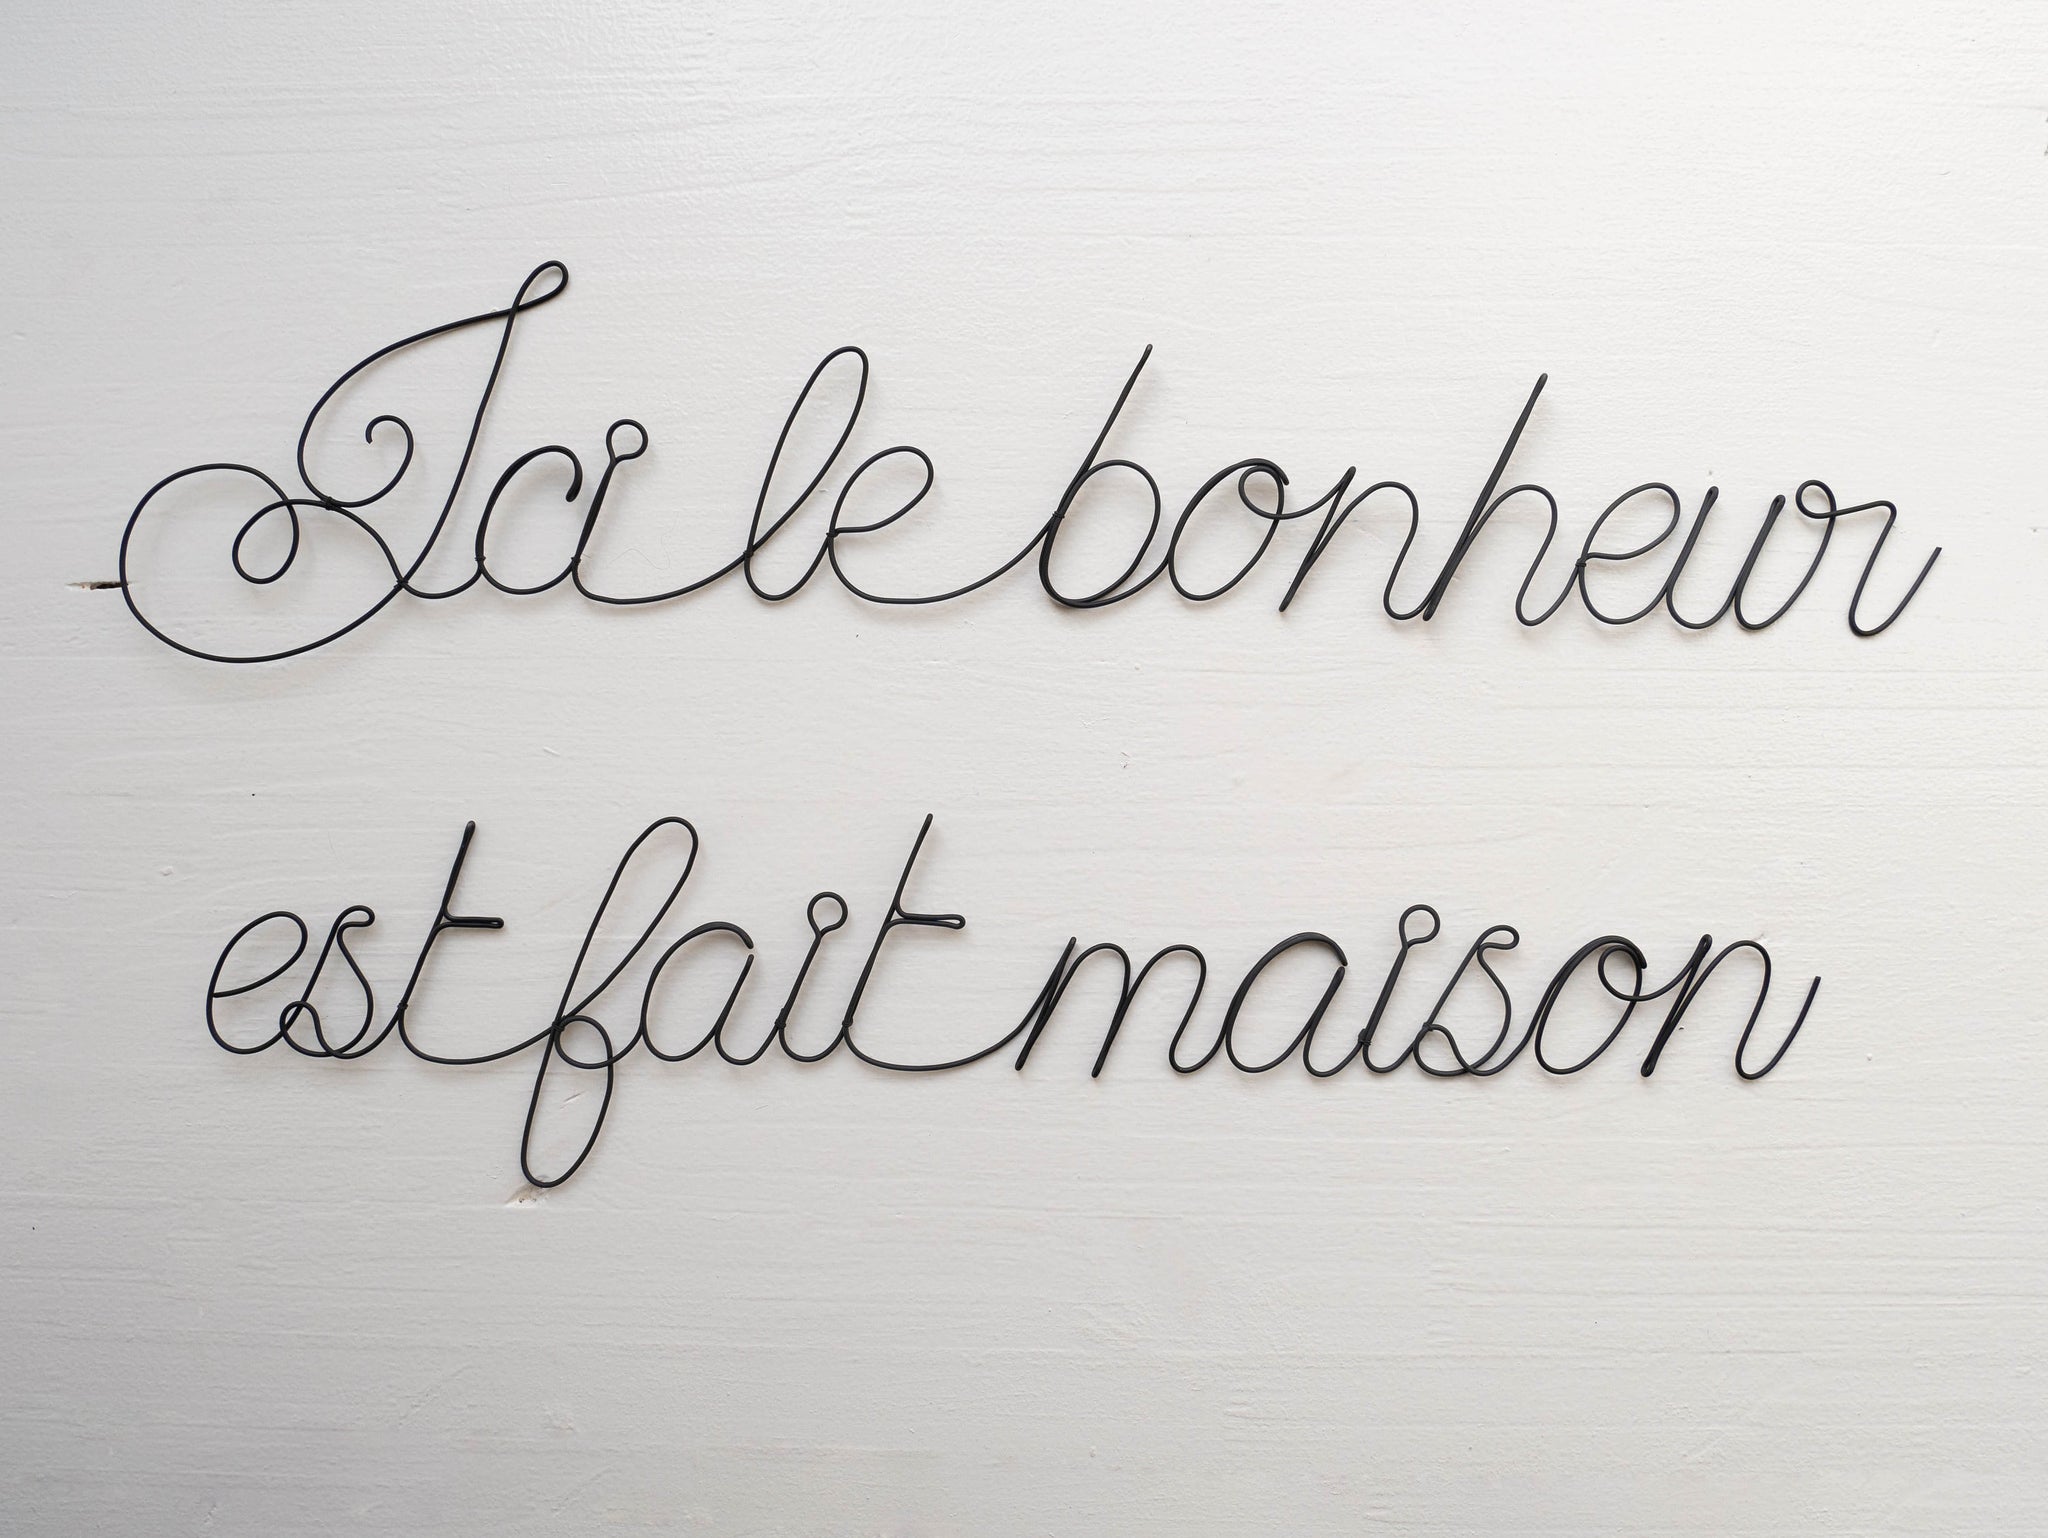 Ici le bonheur
est fait maison